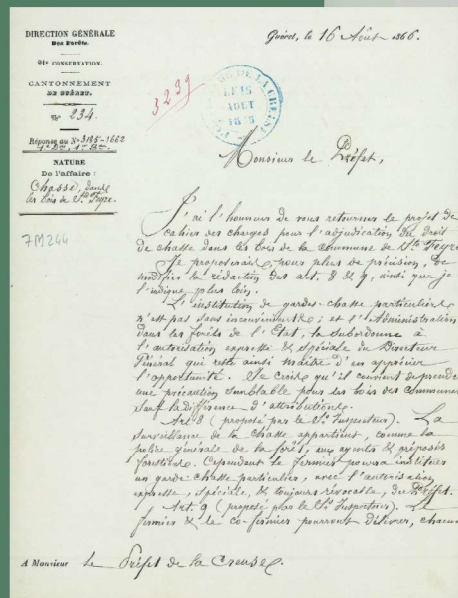 DIRECTION GÉNÉRALE
Des Forêts.
CONSERVATION.
CANTONNEMENT
DE GUÉRET.
N° 234.
Réponse au N° 3185-1662
NATURE
De l'affaire :
Chasse, dans
les bois de Ste Feyre.
7M264
Guéret, le 16 Août 1866.
3239
LE 16
AOUT
Monsieur le Préfet,
J'ai l'honneur de vous retourner le projet de
cahier des charges pour l'adjudication du droit
de chasse dans les bois de la commune de Ste Feyre.
Je proposerais, pour plus de précision, de
modifier la rédaction des art. 8 & 9, ainsi que je
l'indique plus loin.
L'institution de gardes-chasse particuliers
n'est pas sans inconvénients ; et l'Administration
dans les forêts de l'État, la subordonne à
l'autorisation expresse & spéciale du Directeur
Général qui reste ainsi maître d'en apprécier
l'opportunité. Je crois qu'il convient de prendre
une précaution semblable pour les bois des communes
sauf la différence d'attributions.
Art. 8 (proposé par le Sr Inspecteur). La
surveillance de la chasse appartient, comme la
police générale de la forêt, aux agents & préposés
forestiers. Cependant le fermier pourra instituer
un garde chasse particulier, avec l'autorisation
expresse, spéciale, & toujours révocable, du Préfet.
Art. 9 (proposé par le Sr Inspecteur). Le
fermier & le co-fermier pourront délivrer, chacun
A Monsieur Le Préfet de la Creuse.